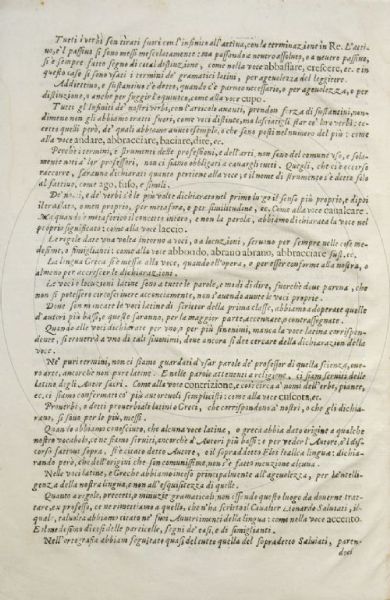 Tutti i verbi sen tirati fuori con l'infinito all'attiua, con la terminazione in Re. L'atti-
uo, e'l passiuo si sono messi mescolatamente: ma passando a neutro assoluto, o a neutro passiuo,
si è sempre fatto segno di cotal distinzione, come nella voce abbassare, crescere, ec. e in
questo caso si sono vsati i termini de' gramatici latini, per ageuolezza del leggitore.
Addiettiuo, e sustantiuo s'è detto, quando c'è paruto necessario, o per ageuolezza, o per
distinzione, o anche per fuggir l'equiuoco, come alla voce cupo.
Tutti gl'Infiniti de' nostri verbi, con l'articolo auanti, prendon forza di sustantiui, non-
dimeno non gli abbiamo tratti fuori, come voci distinte, ma lasciatigli star co' lor verbi: ec-
cetto quelli però, de' quali abbiamo auuto esemplo, o che sono posti nel numero del più: come
alla voce andare, abbracciare, baciare, dire, ec.
Perchè i termini, e strumenti delle professioni, e dell'arti, non sono del comune vso, e sola-
mente noti a' lor professori, non ci siamo obbligati a cauargli tutti. Quegli, che ci è occorso
raccorre, saranno dichiarati quanto pertiene alla voce, o il nome di strumento s'è detto solo
al fattiuo, come ago, fuso, e simili.
De' nomi, e de' verbi s'è le più volte dichiarato nel primo luogo il senso più proprio, e dipoi
il traslato, o men proprio, per metafora, o per similitudine, ec. Come alla voce caualcare.
Ma quando è metaforico il concetto intero, e non la parola, abbiamo dichiarata la voce nel
proprio significato: come alla voce laccio.
Le regole date vna volta intorno a voci, o a locuzioni, seruono per sempre nelle cose me-
desime, o somiglianti: come alla voce abbondo, abrano abrano, abbracciare sust. ec.
La lingua Greca s'è messa alla voce, quando l'opera, o per esser conforme alla nostra, o
almeno per accrescer le dichiarazioni.
Le voci o locuzioni latine sono a tutte le parole, e modi di dire, fuorchè doue paruna, che
non si potessero circoscriuere acconciamente, non s'auendo auute le voci proprie.
Doue son mancate le voci latine di scrittor della prima classe, abbiamo adoperate quelle
d'autori più bassi, e queste saranno, per la maggior parte, accennate, e contrassegnate.
Quando alle voci dichiarate per vno, o per più sinonimi, manca la voce latina correspon-
dente, si trouerrà a vno di cotali sinonimi, doue ancora si dee cercare della dichiarazion della
voce.
Ne' puri termini, non ci siamo guardati d'vsar parole de' professor di quella scienza, ouero
arte, ancorchè non pure latine. E nelle parole attenenti a religione, ci siam seruiti delle
latine degli Autor sacri. Come alla voce contrizione, e così circa a' nomi dell'erbe, piante,
ec. ci siamo conformati co' più autoreuoli semplicisti: come alla voce cuscuta, ec.
Prouerbi, o detti prouerbiali latini, o Greci, che correspondono a' nostri, o che gli dichia-
rano, si sono per lo più, messi.
Quando abbiamo conosciuto, che alcuna voce latina, o greca abbia dato origine a qualche
nostro vocabolo, ce ne siamo seruiti, ancorchè d'Autori più bassi: e per veder l'Autore, o 'l dis-
corso fattoui sopra, s'è citato detto Autore, o il sopraddetto Flos italica lingua: dichia-
rando però, che dell'origini che son comunissime, non s'è fatto menzione alcuna.
Nelle voci latine, e Greche abbiamo inteso principalmente all'ageuolezza, per la 'ntelli-
genza della nostra lingua, e non all'esquisitezza di quelle.
Quanto a regole, precetti, e minuzie gramaticali non essendo questo luogo da douerne trat-
tare, ex professo, ce ne rimettiamo a quelle, che n'ha scritto il Caualier Lionardo Saluiati, il
quale, taluolta abbiamo citato ne' suoi Auuertimenti della lingua: come nella voce accento.
E'l medesimo diciamo delle particelle, segni de' casi, e di simiglianti.
Nell'ortografia abbiam seguitato quasi del tutto quella del sopraddetto Saluiati, paren-
doci